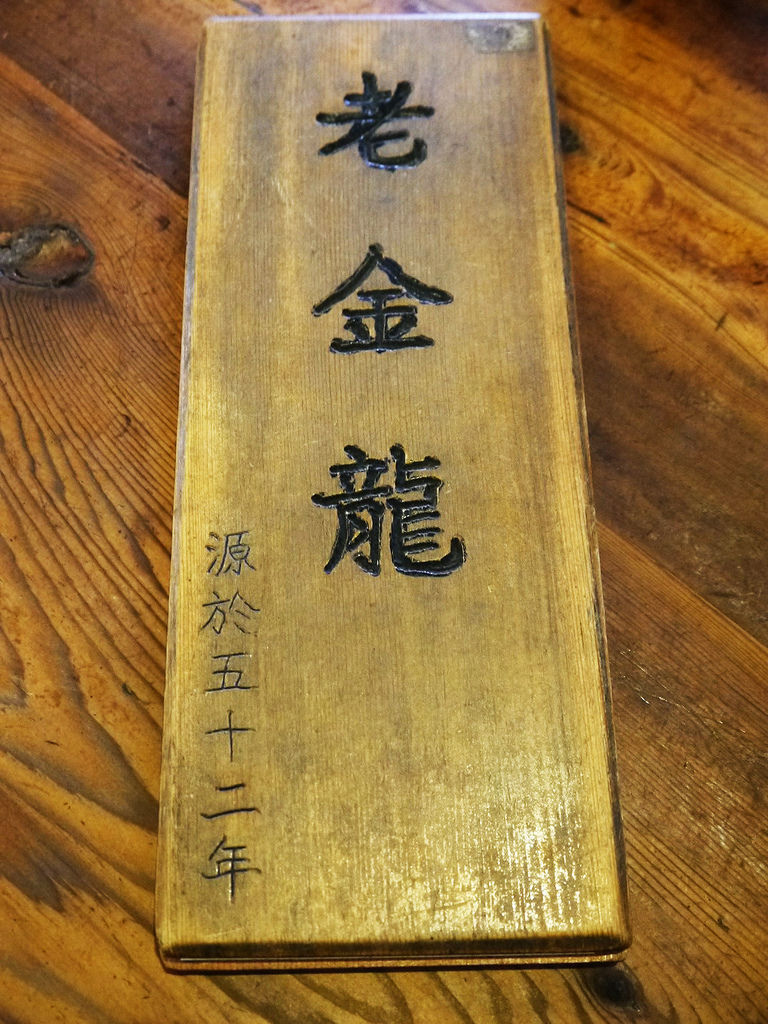 老金龍
源於五十二年